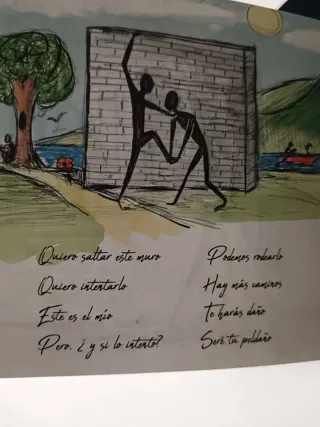 Quiero saltar este muro
Quiero intentarlo
Este es el mío
Pero, ¿ y si lo intento?
Podemos rodearlo
Hay más caminos
Te harás daño
Seré tu peldaño